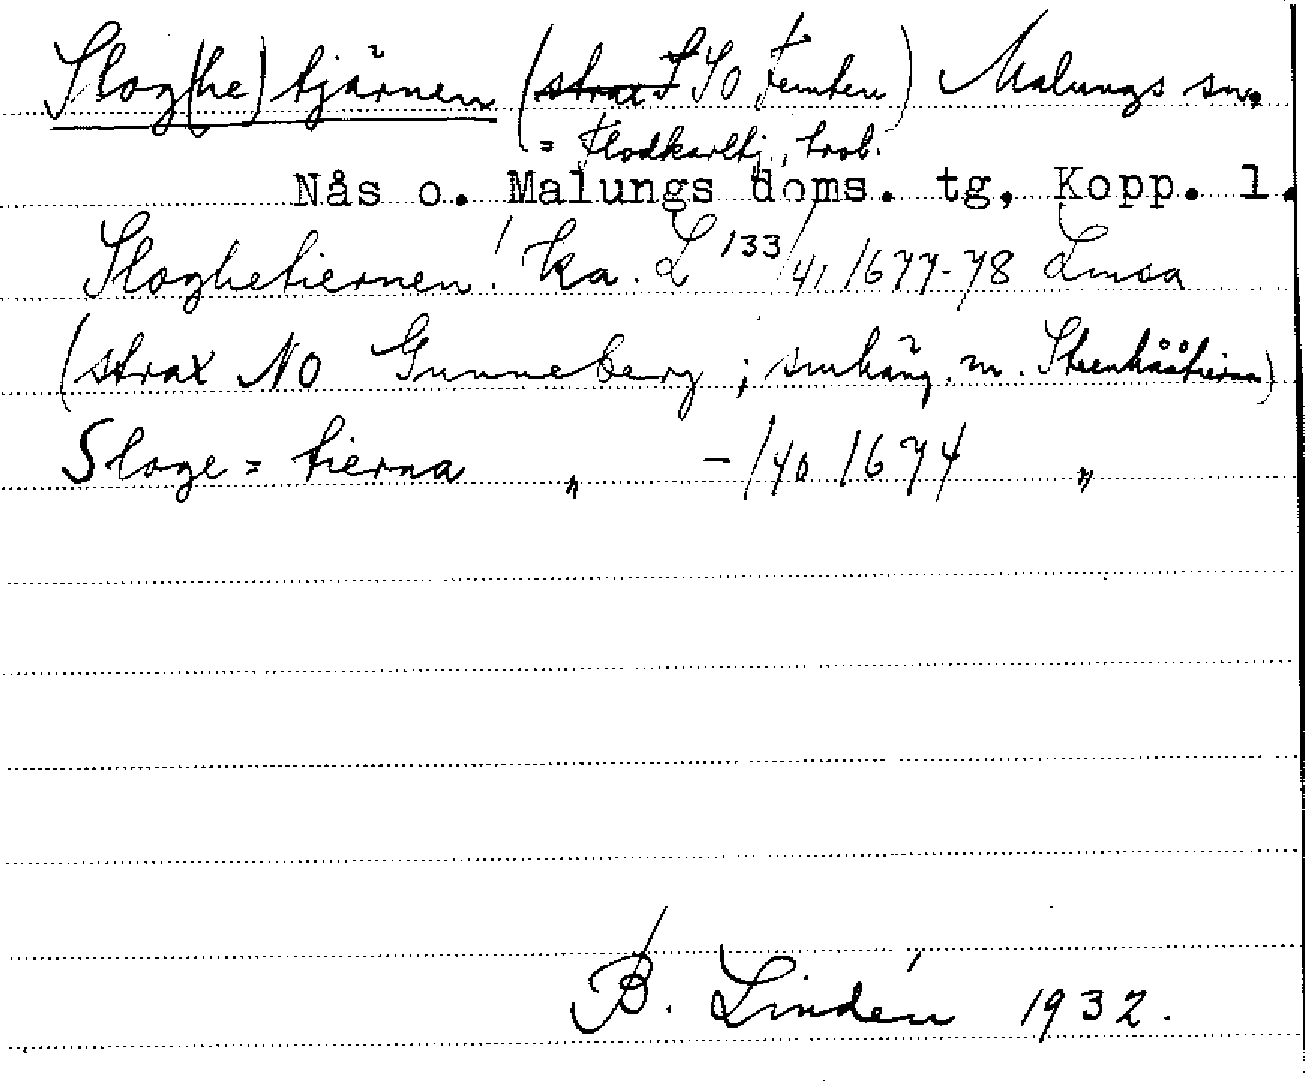 Slog(he)tjärnen (strax SO Femten) Malungs sn.
= Flodkarltj., trol.
Nås o. Malungs doms. tg, Kopp. l.
Sloghetiernen! Ka. L 133/41 1677-78 Lmsa
(strax NO Gunneberg; smhäng. m. Steenkååstierna)
Sloge=tierna " -/40 1674 "
B. Lindén 1932.